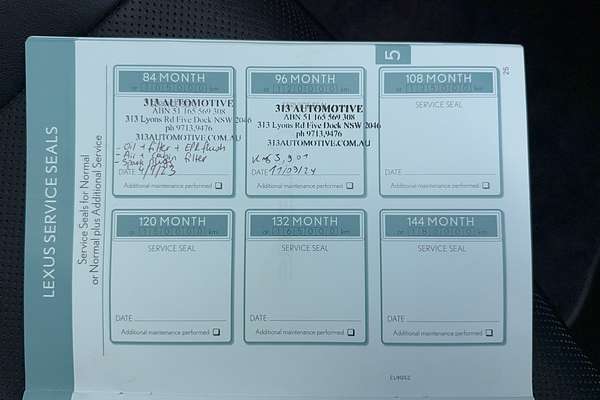 LEXUS SERVICE SEALS
Service Seals for Normal
or Normal plus Additional Service
5
25
84 MONTH
or
km
313 AUTOMOTIVE
ABN 51 165 569 308
313 Lyons Rd Five Dock NSW 2046
ph 9713,9476
313AUTOMOTIVE.COM.AU
- Oil + filter + EPL flush
- Air + cabin filter
- Spark plugs
DATE 4/9/23
Additional maintenance performed
96 MONTH
or
km
313 AUTOMOTIVE
ABN 51 165 569 308
313 Lyons Rd Five Dock NSW 2046
ph 9713,9476
313AUTOMOTIVE.COM.AU
DATE 11/09/24
Additional maintenance performed
108 MONTH
or
km
SERVICE SEAL
DATE
Additional maintenance performed
120 MONTH
or
km
SERVICE SEAL
DATE
Additional maintenance performed
132 MONTH
or
km
SERVICE SEAL
DATE
Additional maintenance performed
144 MONTH
or
km
SERVICE SEAL
DATE
Additional maintenance performed